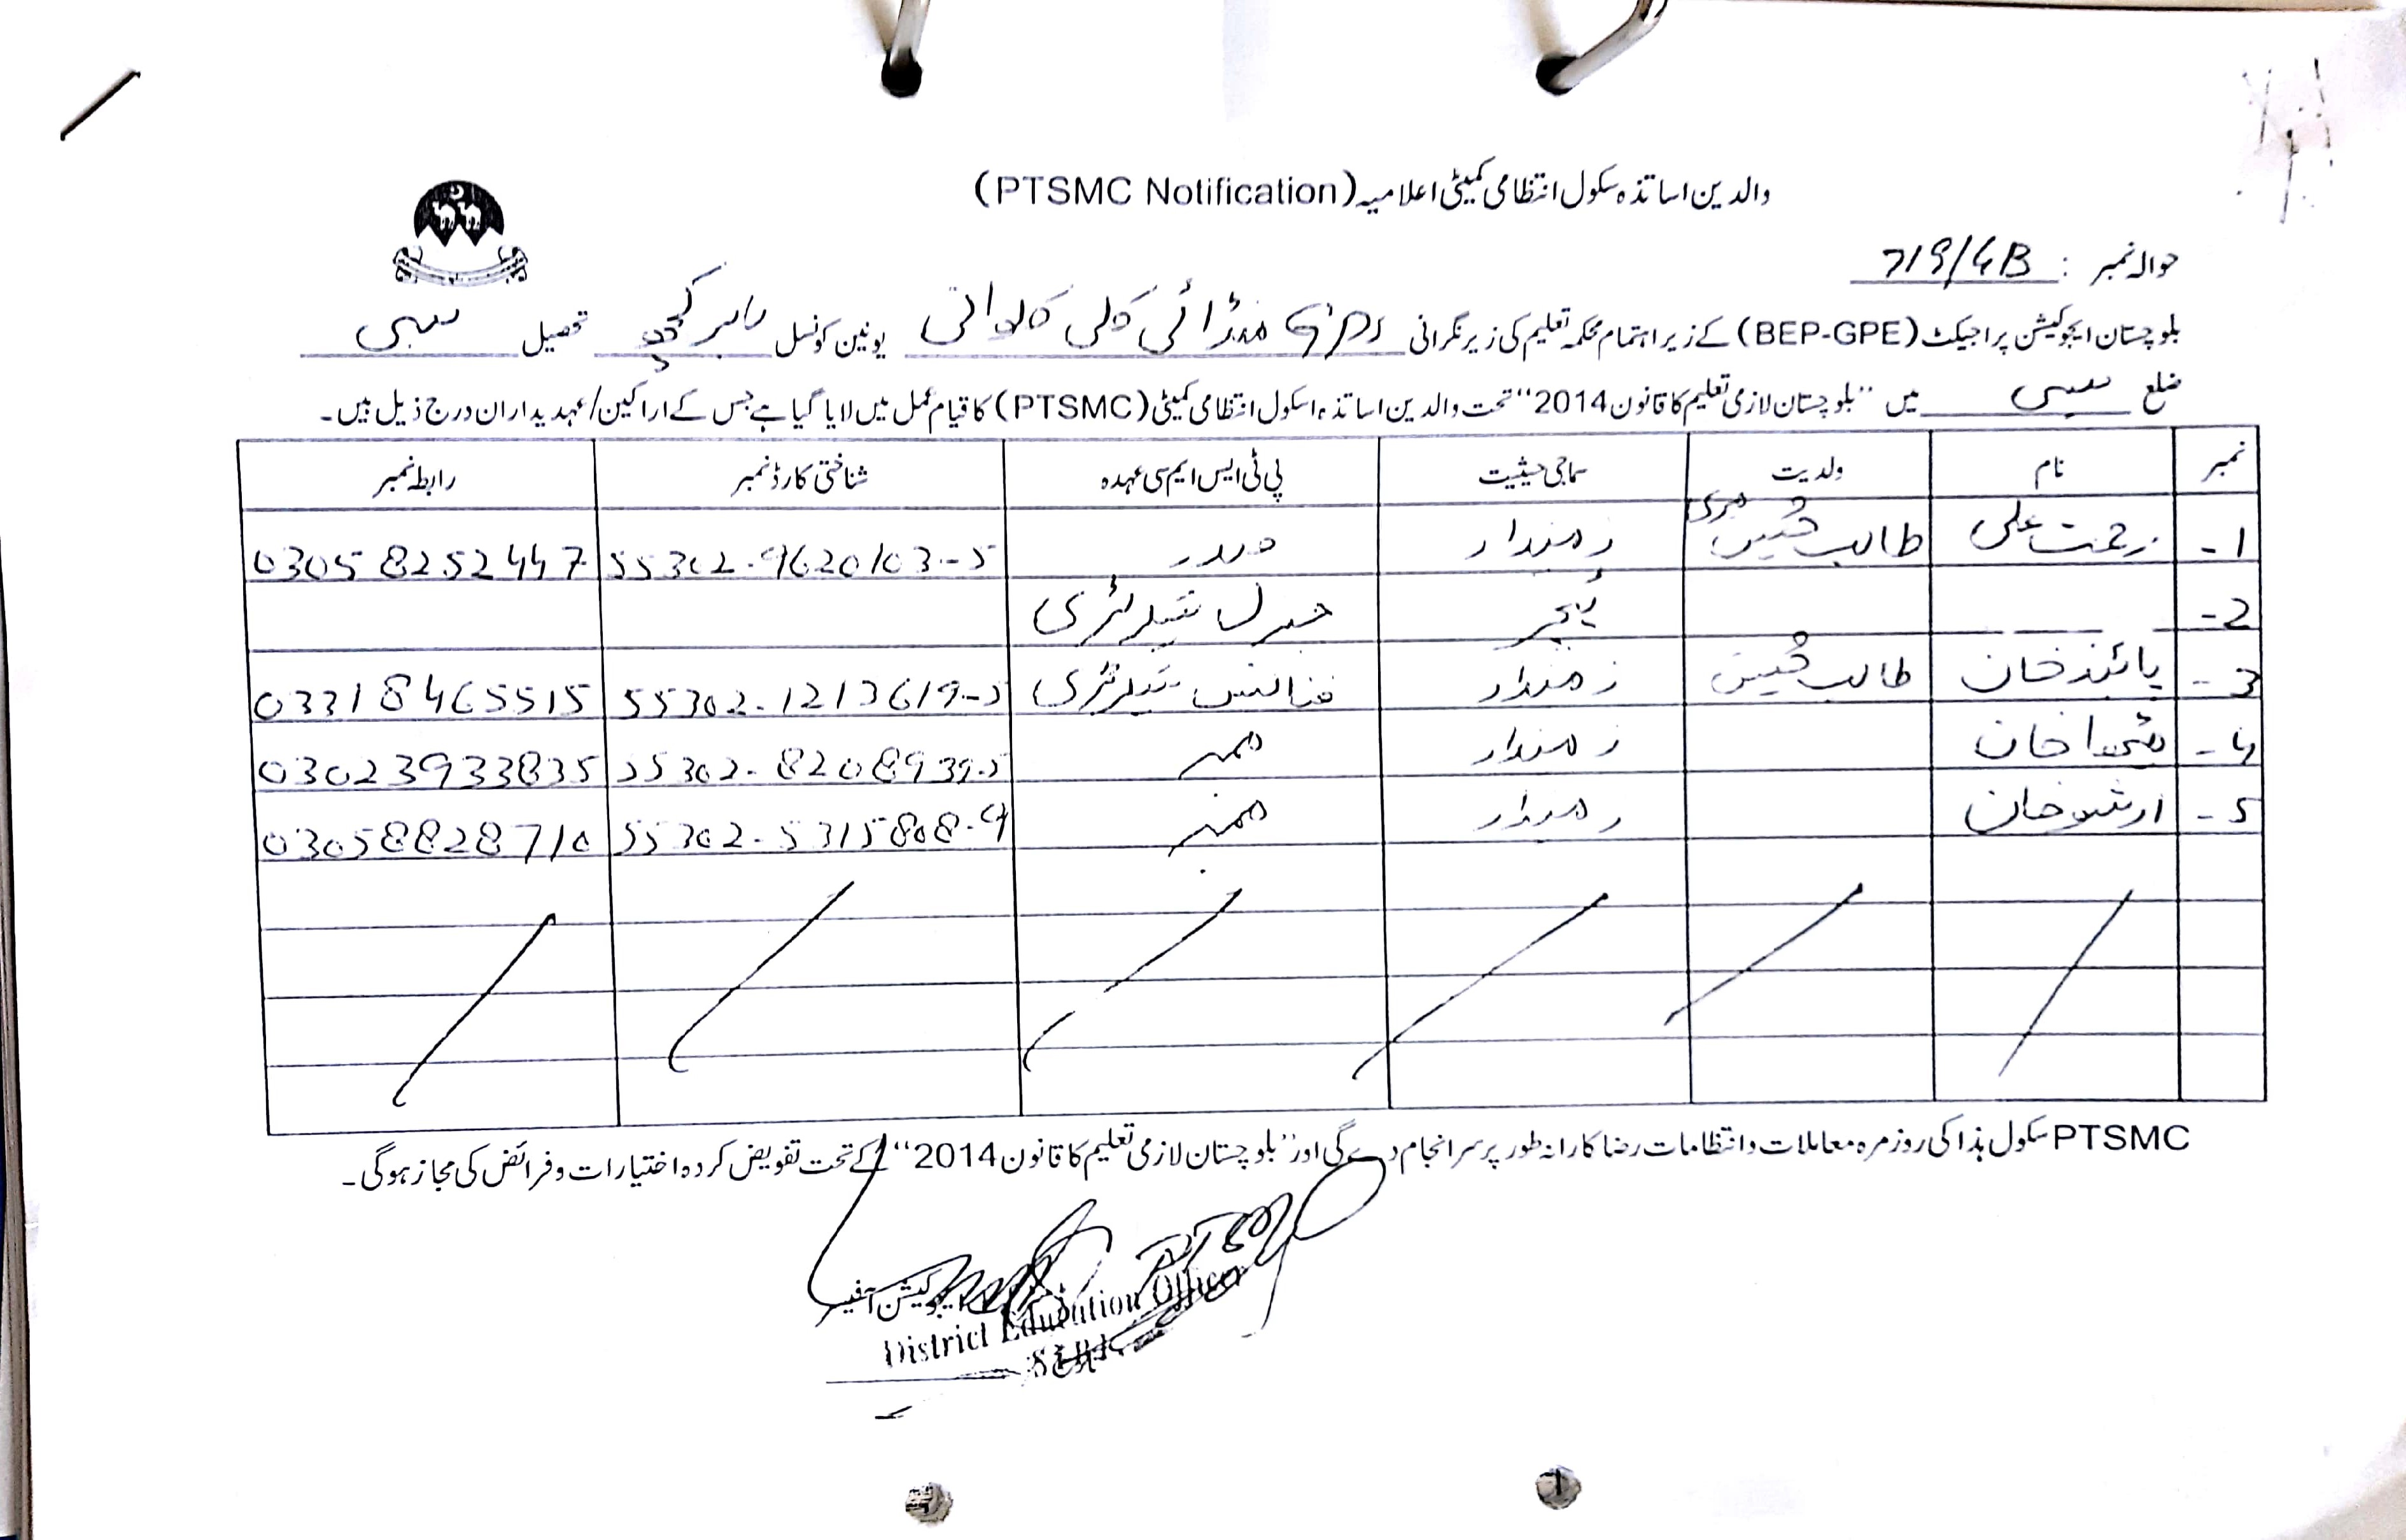 والدین اساتذہ سکول انتظامی کمیٹی اعلامیہ (PTSMC Notification)
حوالہ نمبر : 719/GB
بلوچستان ایجوکیشن پراجیکٹ (BEP-GPE) کے زیر اہتمام محکمہ تعلیم کی زیر نگرانی GPS کلی یونین کونسل تحصیل سبی
ضلع سبی میں "بلوچستان لازمی تعلیم کا قانون 2014" تحت والدین اساتذہ اسکول انتظامی کمیٹی (PTSMC) کا قیام عمل میں لایا گیا ہے جس کے اراکین/عہدیداران درج ذیل ہیں۔
نمبر نام ولدیت سماجی حیثیت پی ٹی ایس ایم سی عہدہ شناختی کارڈ نمبر رابطہ نمبر
1- رحمت علی طالب حسین مری زمیندار صدر 55302-9620103-5 03058252447
2- ٹیچر جنرل سیکرٹری
3- پائند خان طالب حسین زمیندار فنانس سیکرٹری 55302-1213619-5 03318465515
4- خان زمیندار ممبر 55302-8208939-5 03023933835
5- خان زمیندار ممبر 55302-5315808-9 03058828710
PTSMC سکول ہذا کی روزمرہ معاملات و انتظامات رضاکارانہ طور پر سرانجام دے گی اور "بلوچستان لازمی تعلیم کا قانون 2014" کے تحت تفویض کردہ اختیارات و فرائض کی مجاز ہوگی۔
ایجوکیشن آفیسر
District Education Officer
SIBI